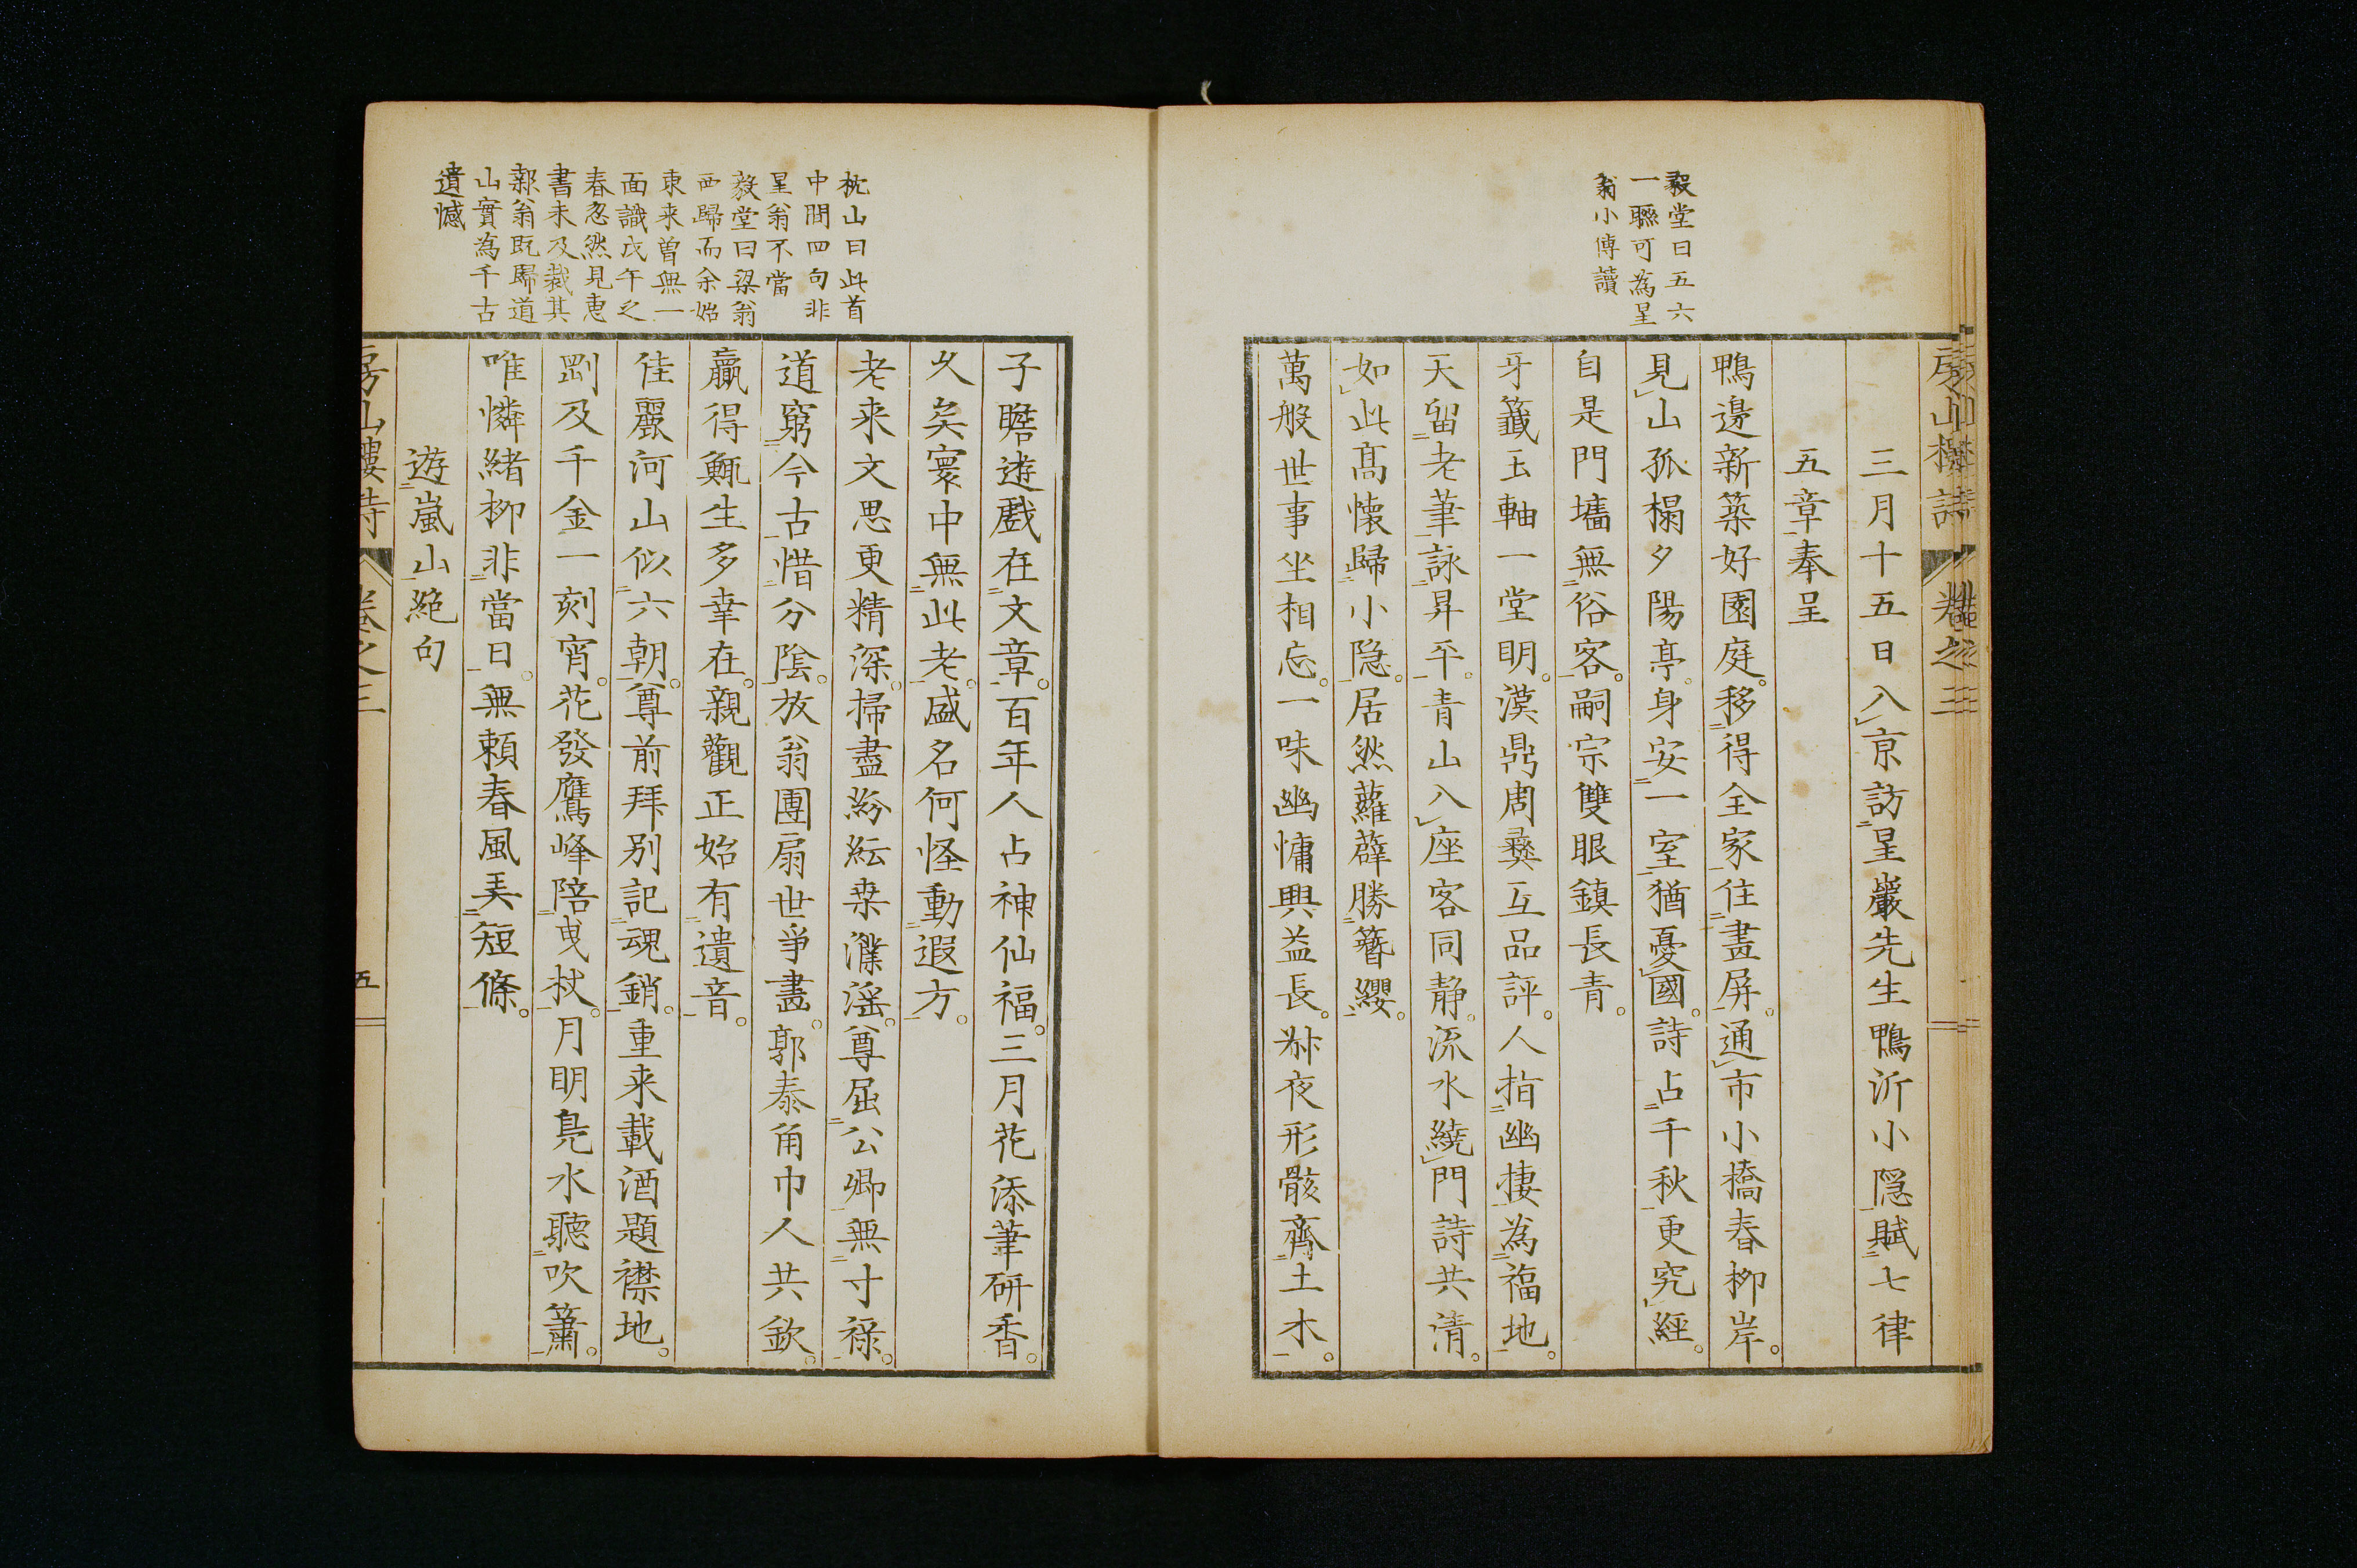 房山樓詩
卷之三
毅堂曰五六
一聯可為星
翁小傳讀
三月十五日入京訪星巖先生鴨沂小隱賦七律
五章奉呈
鴨邊新築好園庭移得全家住畫屏通市小橋春柳岸
見山孤榻夕陽亭身安一室猶憂國詩占千秋更究經
自是門墻無俗客嗣宗雙眼鎮長青
牙籤玉軸一堂明漢鼎周彝互品評人指幽棲為福地
天留老筆詠昇平青山入座客同靜流水繞門詩共清
如此高懷歸小隱居然蘿薜勝簪纓
萬般世事坐相忘一味幽慵興益長夜形骸齊土木
枕山曰此首
中間四句非
星翁不當
毅堂曰梁翁
西歸而余始
東来曽無一
面識戊午之
春忽然見恵
書未及裁其
報翁既歸道
山實為千古
遺憾
子瞻遊戲在文章百年人占神仙福三月花添筆研香
久矣寰中無此老盛名何怪動遐方
老来文思更精深掃盡紛紜桒濮淫尊屈公卿無寸祿
道窮今古惜分陰放翁團扇世爭畫郭泰角巾人共欽
贏得鯫生多幸在親觀正始有遺音
佳麗河山似六朝尊前拜別記魂銷重来載酒題襟地
剛及千金一刻宵花發鷹峰陪曳杖月明鳧水聽吹簫
唯憐緒柳非當日無賴春風弄短條
遊嵐山絕句
房山樓詩
卷之三
五